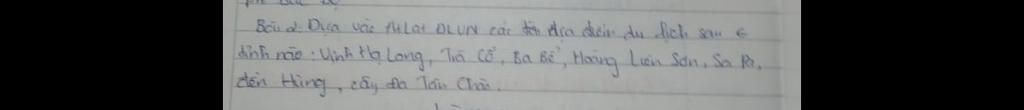 Bài 2: Dựa vào Atlat ĐLVN các tên địa điểm du lịch sau ∈
tỉnh nào: Vịnh Hạ Long, Trà Cổ, Ba Bể, Hoàng Liên Sơn, Sa Pa,
đền Hùng, cây đa Tân Trào.